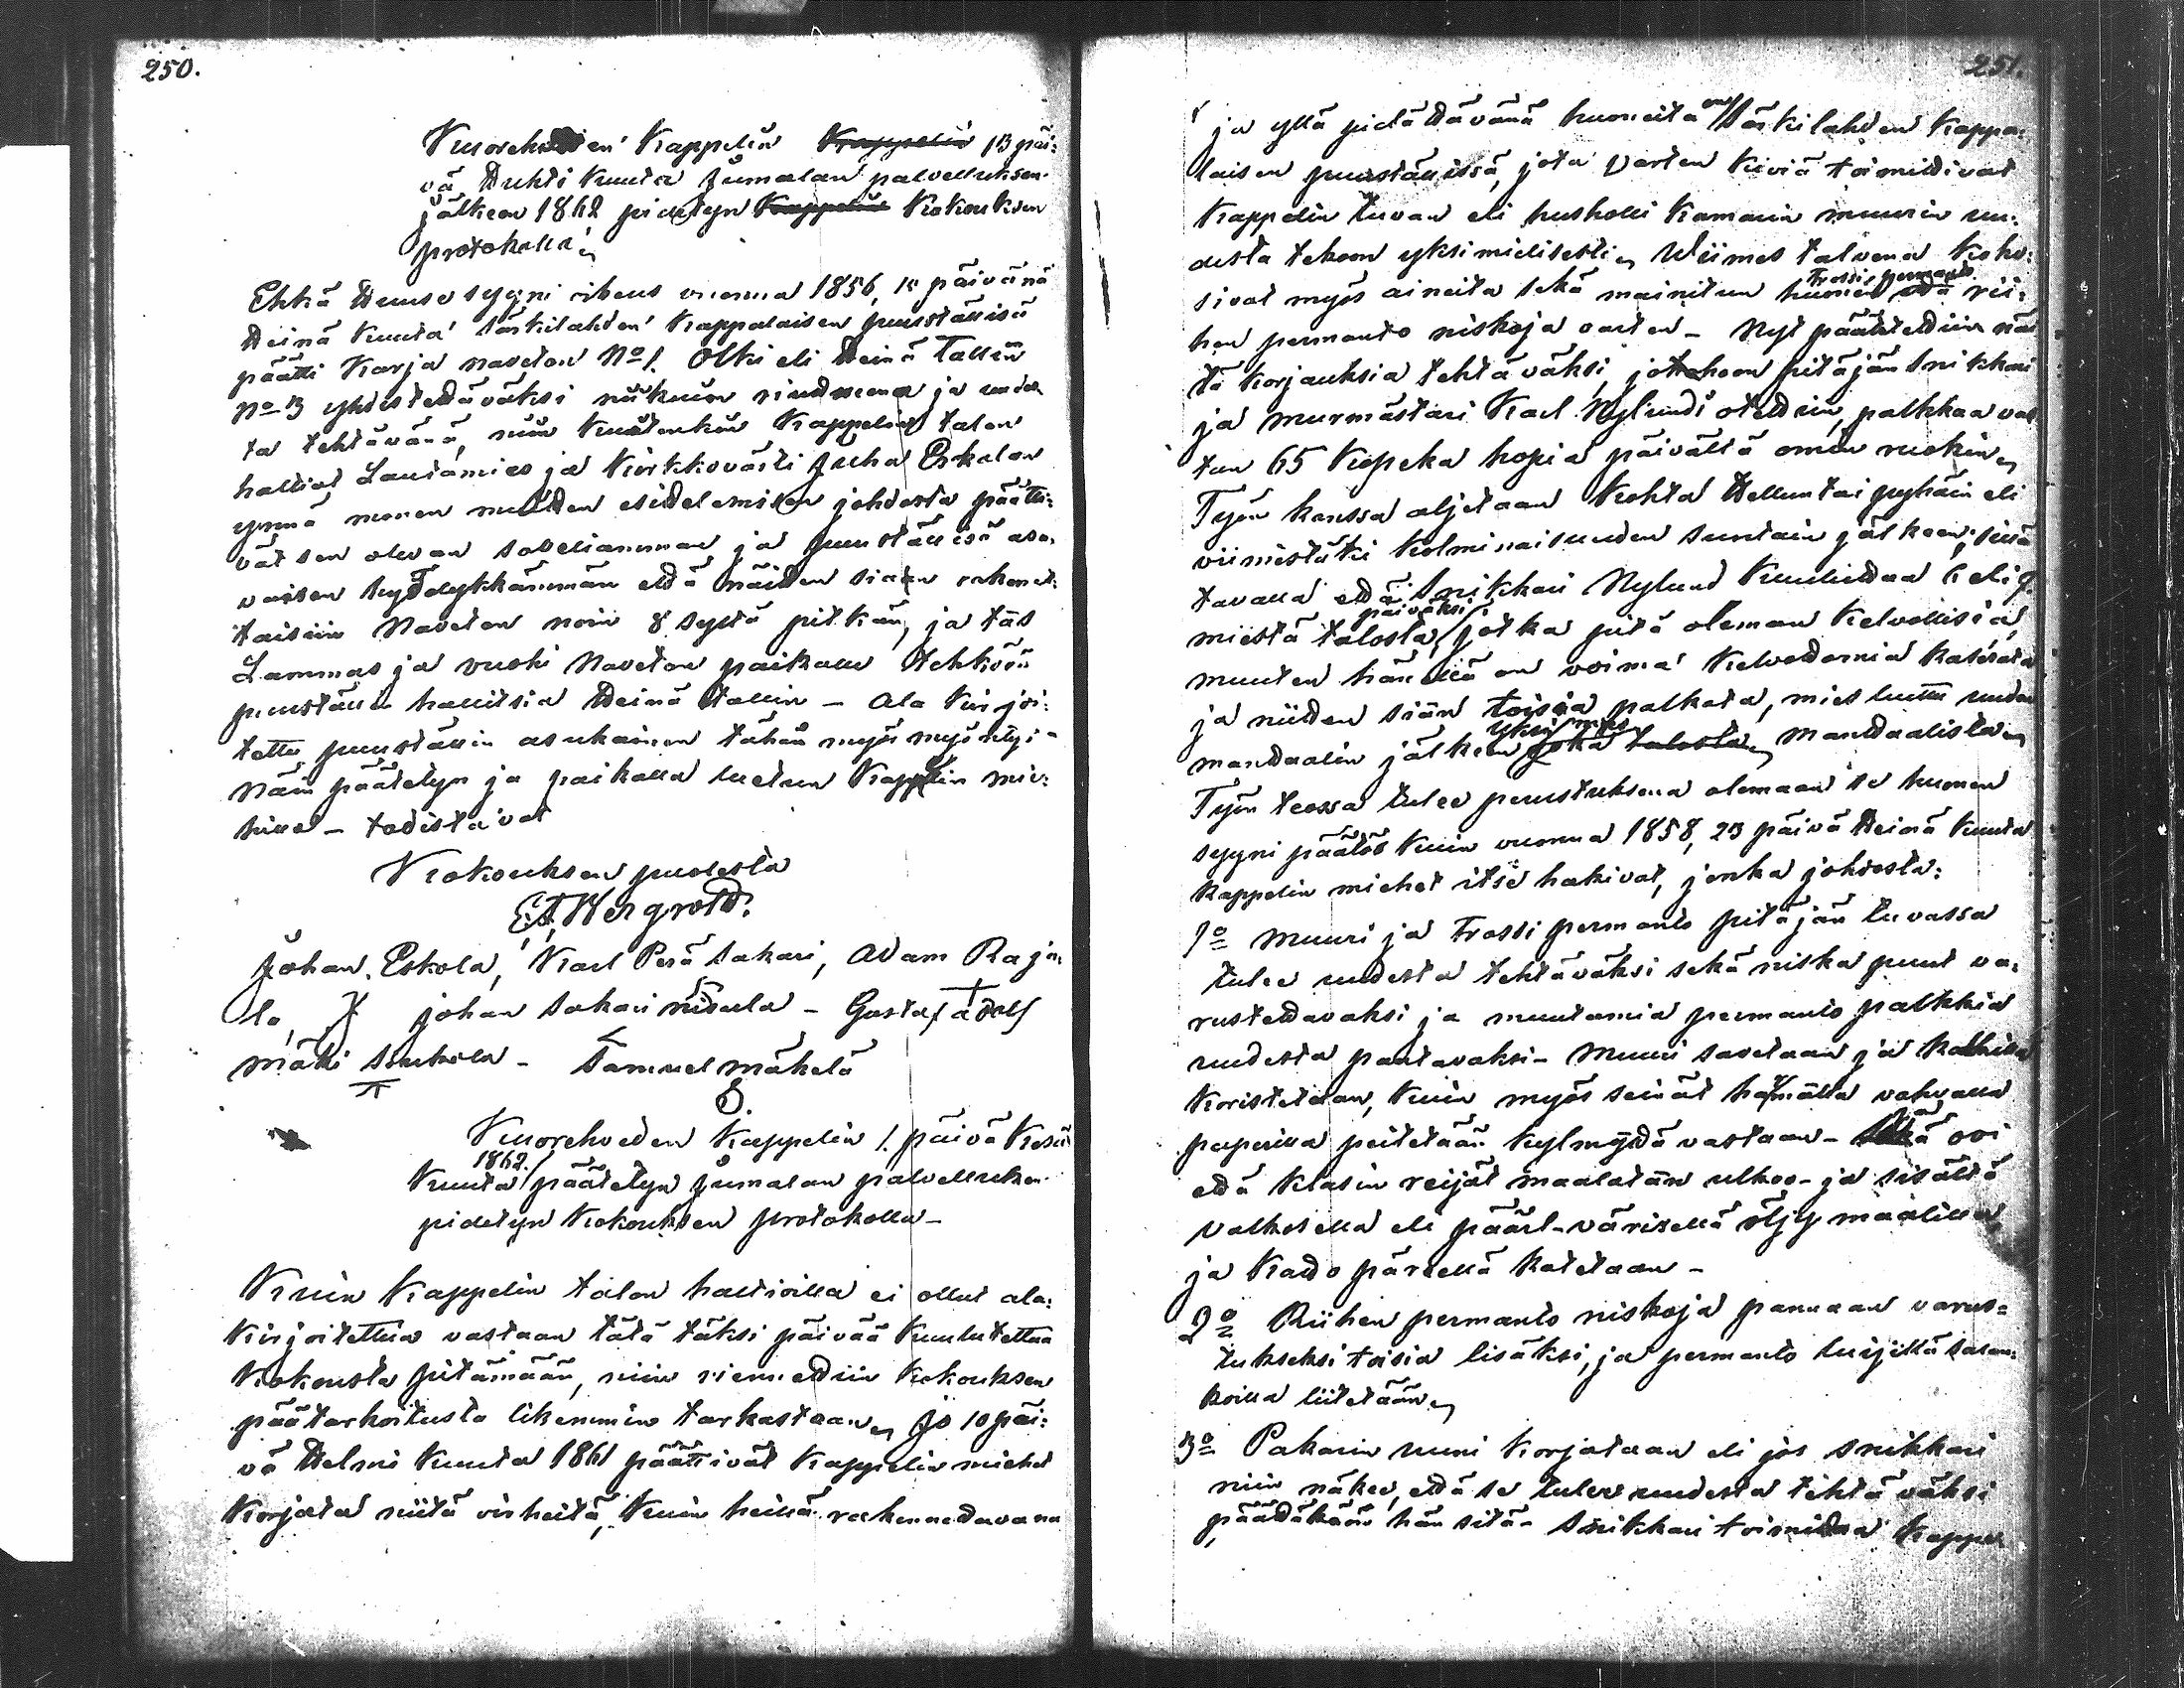 250.
Kuorehveden Kappelin Kappelin 13 päi:
vä Huhti kuuta Jumalan palvelluksen
jälkeen 1862 pidetyn Kappelin Kokouksen
protokolla
Ehkä Huuse syyni oikeus vuonna 1856, 10 päivänä
Heinä kuuta Särkilahden Kappalaisen puuställisä
päätti Karja naveton No 1. Olki eli Heinä Tallin
No 13 yhdistettäväksi niikuin ja uudes
ta tehtävänä, niin kuitenkin Kappelin talon
haltiat Lautamies ja Kirkkovärti Juha Eskolan
ynnä monen muidden esidelemisen johdosta päätti:
vät sen olevan sovelianmman ja puuställisä asu,
vaisen hyödelykkämmän että näiden sian rakenet:
taisiin Naveton noin 8 syltä pitkän, ja täs
Lammas ja vuohi Naveton paikalle tehkön
puuställin hallitsia Heinä tallin – Ala kirjoi:
tettu puuställin asukainen tähän myös myöntyi –
Näin päätetyn ja paikalla luetun Kappelin mie:
hille – todistavat
Kokouksen puolesta
E. A. Hergrotd.
Johan. Eskola, Karl Perä Sakari, Adam Raja:
la, johan Sakari nisula – Gustaf adolf
mäki Soukola – Samuel mäkelä
Kuorehveden Kappelin 1. päivä Kesä
1862.
Kuuta päätetyn Jumalan palvelluksen
pidetyn Kokouksen protokolla –
Kuin Kappelin talon haltioilla ei ollut ala:
kirjoitettua vastaan tätä täksi päivää kuulutettua
Kokousta pitämään, niin ruvettiin Kokouksen
päätarkoitusta likemmin tarkastaan Jo 10 päi:
vä Helmi kuuta 1861 päättivät Kappelin miehet
Korjata niitä virheitä, kuin heillä rakennettavana
251.
ja yllä pidättävänä huoneita on Särkilahden Kappa:
laisen puuställissä, jota varten kiviä toimittivat
Kappelin tuvan eli huskolli kamarin muurin uu:
desta tekoon yksimielisesti Wiimes talvena koko:
trossi permanto
sivat myös aineita sekä mainitun huonen että rii:
hen permanto niskoja varten – Nyt päätettiin näi
tä korjauksia tehtäväksi, johonka pitäjän Snikkari
ja murmästari Karl Nylundi otettiin, palkkaa vas
taan 65 kopeka hopia päivältä omin ruokin
Työn kanssa aljetaan kohta Helluntai pyhäin eli
viimistäki kolminaisuuden suntain jälkeen, siinä
tavalla että Snikkari Nylund kuulluttaa 6 eli 7
päiväksi
miestä talosta, jotka pitä oleman kelvollisia,
muuten hänellä on voima kelvottomia
ja niiden siän toisia palkata, mies luttu uuden
yksi mies
manttaalin jälkeen joka talosta manttaalista
Työn teossa tulee perustuksena olemaan se huonen
syyni päätös kuin vuonna 1858, 23 päivä Heinä kuuta
Kappelin miehet itse hakivat, jonka johdosta:
1o Muuri ja trossi permanto pitäjän tuvassa
tulee uudesta tehtäväksi sekä niska puut va,
rustettavaksi ja muutamia permanto palkkia
uudesta pantavaksi – Muuri savetaan ja kalkilla
koristetaan, kuin myös seinät vahvalla
paperilla peitetään kylmyttä vastaan – Sekä ovi
että klasin reijät maalatan ulkoo- ja sisältä
valkosella eli päärl-värisellä öljy maalilla,
ja katto päreellä katetaan –
2o Riihen permanto niskoja pannaan varus=
tukseksi toisia lisäksi, ja permanto lujilla
liitetään
3o Pakarin uuni korjataan eli jos snikkari
niin näkee, että se tulee uudesta tehtäväksi
päättäköön hän sitä – Snikkari toimittaa Kappe